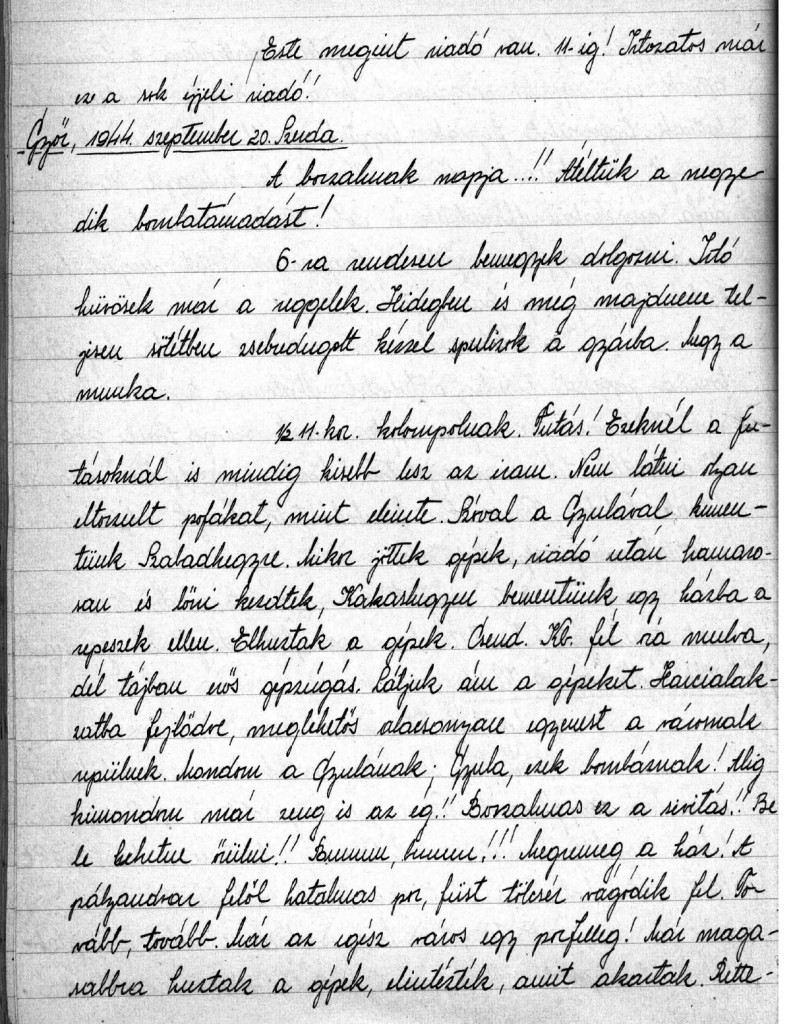 Este megint riadó van. 11-ig! Irtózatos már
ez a sok éjjeli riadó!
Győr, 1944. szeptember 20. Szerda.
A borzalmak napja..!! Átéltük a negye-
dik bombatámadást!
6-ra rendesen bemegyek dolgozni. Irtó
hüvösek már a reggelek. Hidegben és még majdnem tel-
jesen sötétben zsebredugott kézzel spulizok a gyárba. Megy a
munka.
1/2 11-kor. kolompolnak. Futás! Ezeknél a fu-
tásoknál is mindig kisebb lesz az iram. Nem látni olyan
eltorzult pofákat, mint eleinte. Szóval a Gyulával kimen-
tünk Szabadhegyre. Mikor jöttek gépek, riadó után hamaro-
san és lőni kezdtek, Kakashegyen bementünk egy házba a
repeszek ellen. Elhuztak a gépek. Csend. Kb. fél óra mulva,
dél tájban erős gépzúgás. Látjuk ám a gépeket. Harcialak-
zatba fejlődve, meglehetős alacsonyan egyenest a városnak
repülnek. Mondom a Gyulának; Gyula, ezek bombáznak! Alig
kimondom már zeng is az ég!! Borzalmas ez a sivitás!! Be
le lehetne őrülni!! Bummm, bumm!!! Megremeg a ház! A
pályaudvar felől hatalmas por, füst tölcsér vágódik fel. To-
vább, tovább. Már az egész város egy porfelleg! Már maga-
sabbra huztak a gépek, elintézték, amit akartak. Rette-